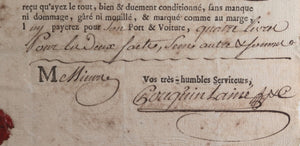 reçu qu'ayez le tout, bien & duement conditionné, fans manque
ni dommage, gâté ni mouillé, & marqué comme au marge
payerez pour son Port & Voiture, quatre livres
Pour les deux
Messieurs
Vos très-humbles Serviteurs,